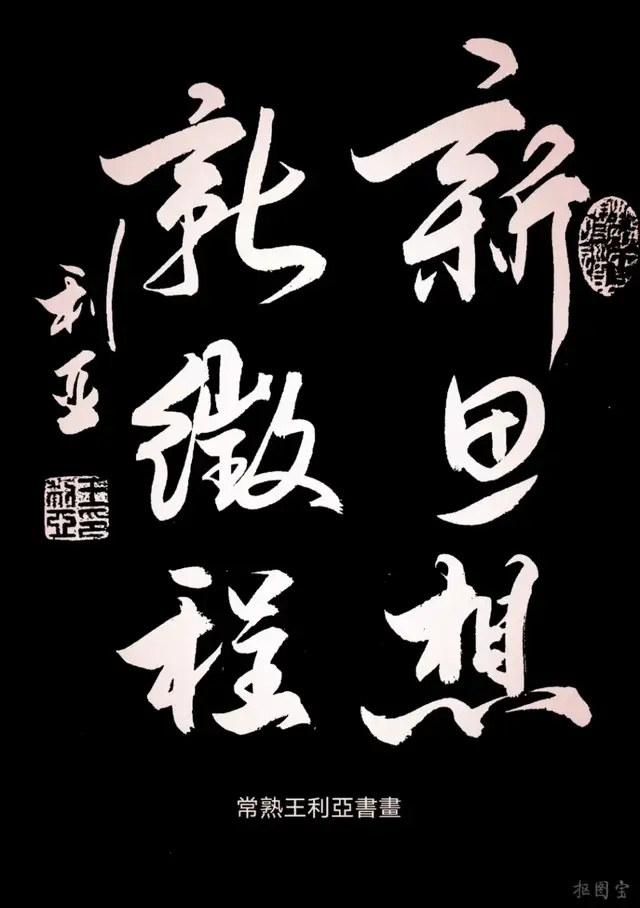 新思想
新徵程
利亚
王印
利亞
常熟王利亞書畫
抠图宝